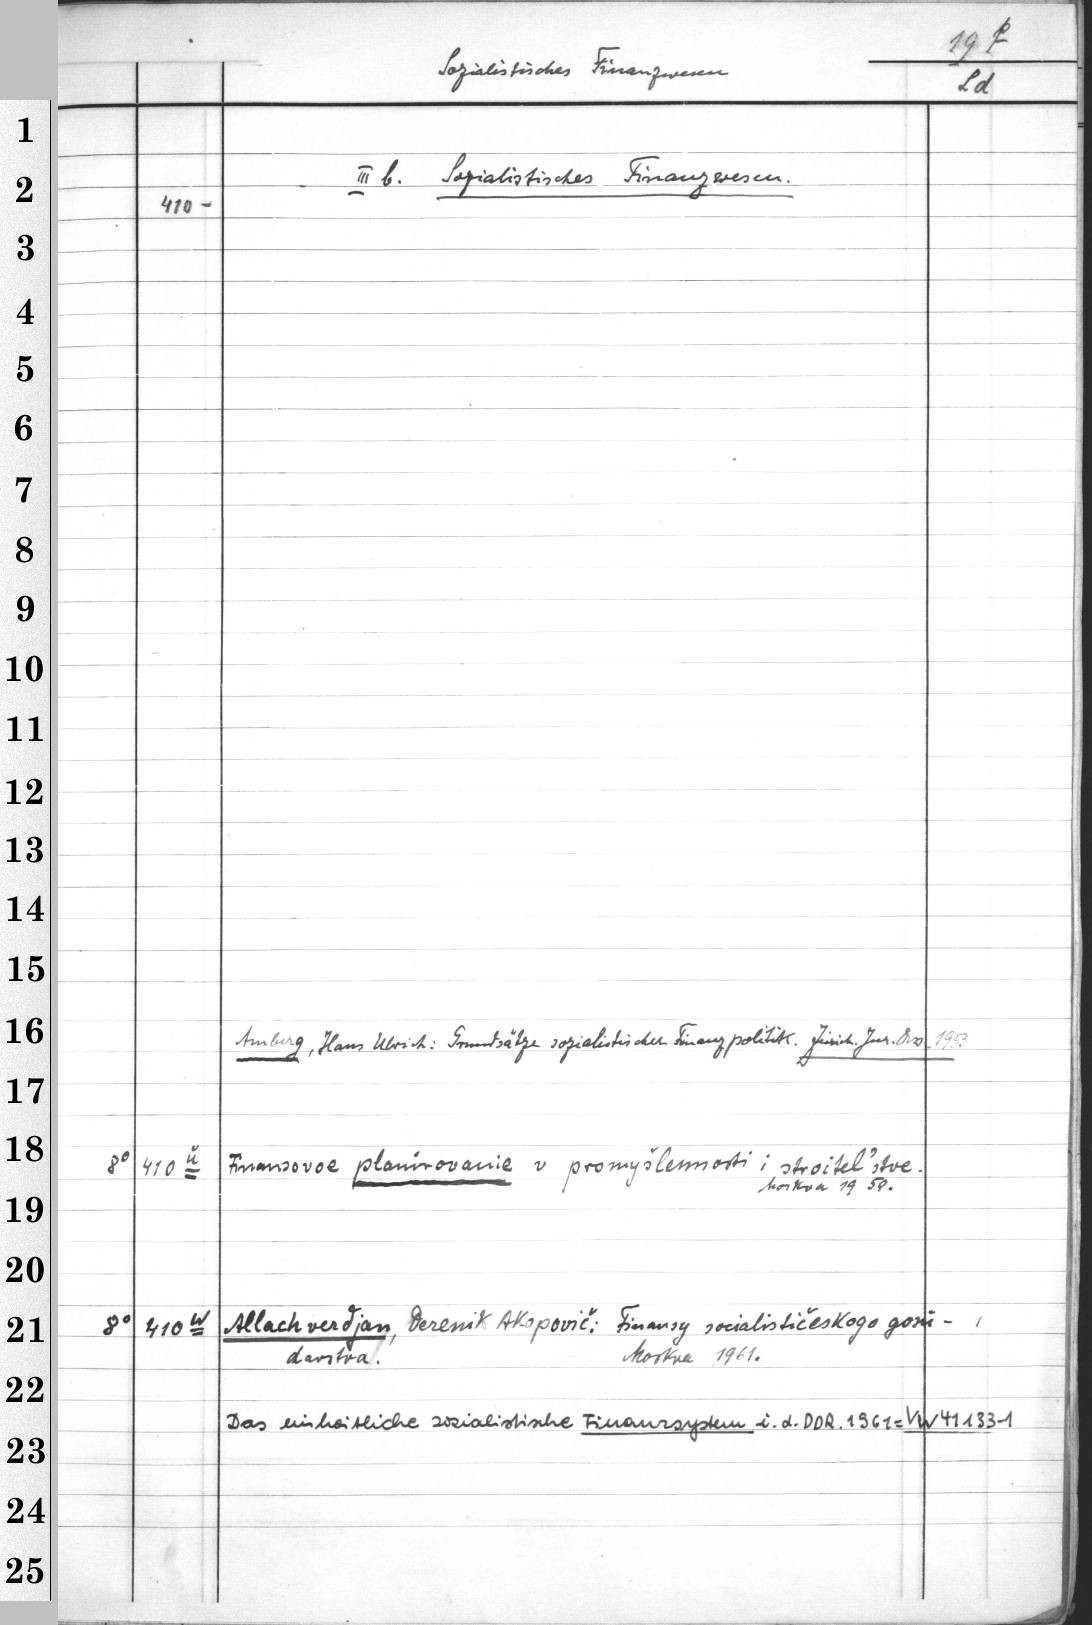 Sozialistisches Finanzwesen
19
Ld
III b. Sozialistisches Finanzwesen.
410 -
Amberg, Hans Ulrich: Grundsätze sozialistischer Finanzpolitik. Zürich. Jur. Diss 1953
8° 410 ü Finansovoe planirovanie v promyšlennosti i stroitel'stve.
Moskva 1958.
8° 410 w Allachverdjan, Derenik Akopovič: Finansy socialističeskogo gosu-
darstva. Moskva 1961.
Das einheitliche sozialistische Finanzsystem i. d. DDR. 1961 = VW 41133-1
1
2
3
4
5
6
7
8
9
10
11
12
13
14
15
16
17
18
19
20
21
22
23
24
25